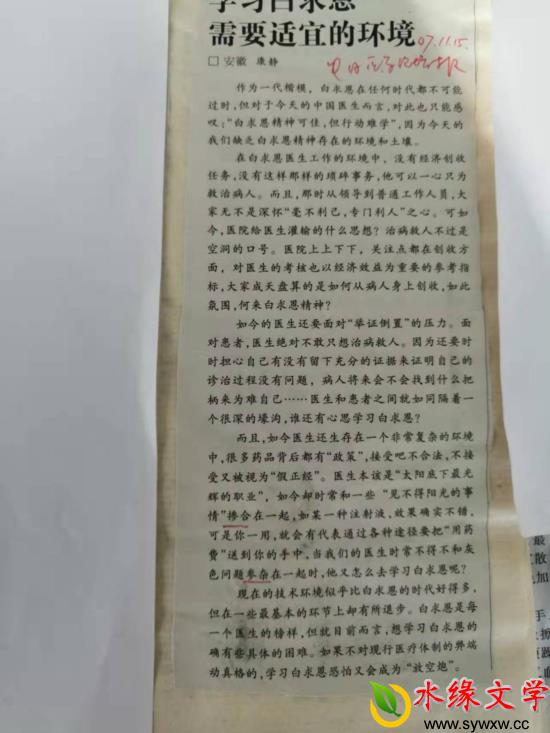 学习白求恩
需要适宜的环境
07.11.15.
□ 安徽 康静
报
作为一代楷模，白求恩在任何时代都不可能
过时，但对于今天的中国医生而言，对此也只能感
叹：“白求恩精神可佳，但行动难学”，因为今天的
我们缺乏白求恩精神存在的环境和土壤。
在白求恩医生工作的环境中，没有经济创收
任务，没有这样那样的琐碎事务，他可以一心只为
救治病人。而且，那时从领导到普通工作人员，大
家无不是深怀“毫不利己，专门利人”之心。可如
今，医院给医生灌输的什么思想？治病救人不过是
空洞的口号。医院上上下下，关注点都在创收方
面，对医生的考核也以经济效益为重要的参考指
标，大家成天盘算的是如何从病人身上创收，如此
氛围，何来白求恩精神？
如今的医生还要面对“举证倒置”的压力。面
对患者，医生绝对不敢只想治病救人。因为还要时
时担心自己有没有留下充分的证据来证明自己的
诊治过程没有问题，病人将来会不会找到什么把
柄来为难自己……医生和患者之间就如同隔着一
个很深的壕沟，谁还有心思学习白求恩？
而且，如今医生还生存在一个非常复杂的环境
中，很多药品背后都有“政策”，接受吧不合法，不接
受又被视为“假正经”。医生本该是“太阳底下最光
辉的职业”，如今却时常和一些“见不得阳光的事
情”掺合在一起，如某一种注射液，效果确实不错，
可是你一用，就会有代表通过各种途径要把“用药
费”送到你的手中，当我们的医生时常不得不和灰
色问题参杂在一起时，他又怎么去学习白求恩呢？
现在的技术环境似乎比白求恩的时代好得多，
但在一些最基本的环节上却有所退步。白求恩是每
一个医生的榜样，但就目前而言，想学习白求恩的
确有些具体的困难。如果不对现行医疗体制的弊端
动真格的，学习白求恩恐怕又会成为“放空炮”。
最
散
加
手
水缘文学
www.sywxw.com